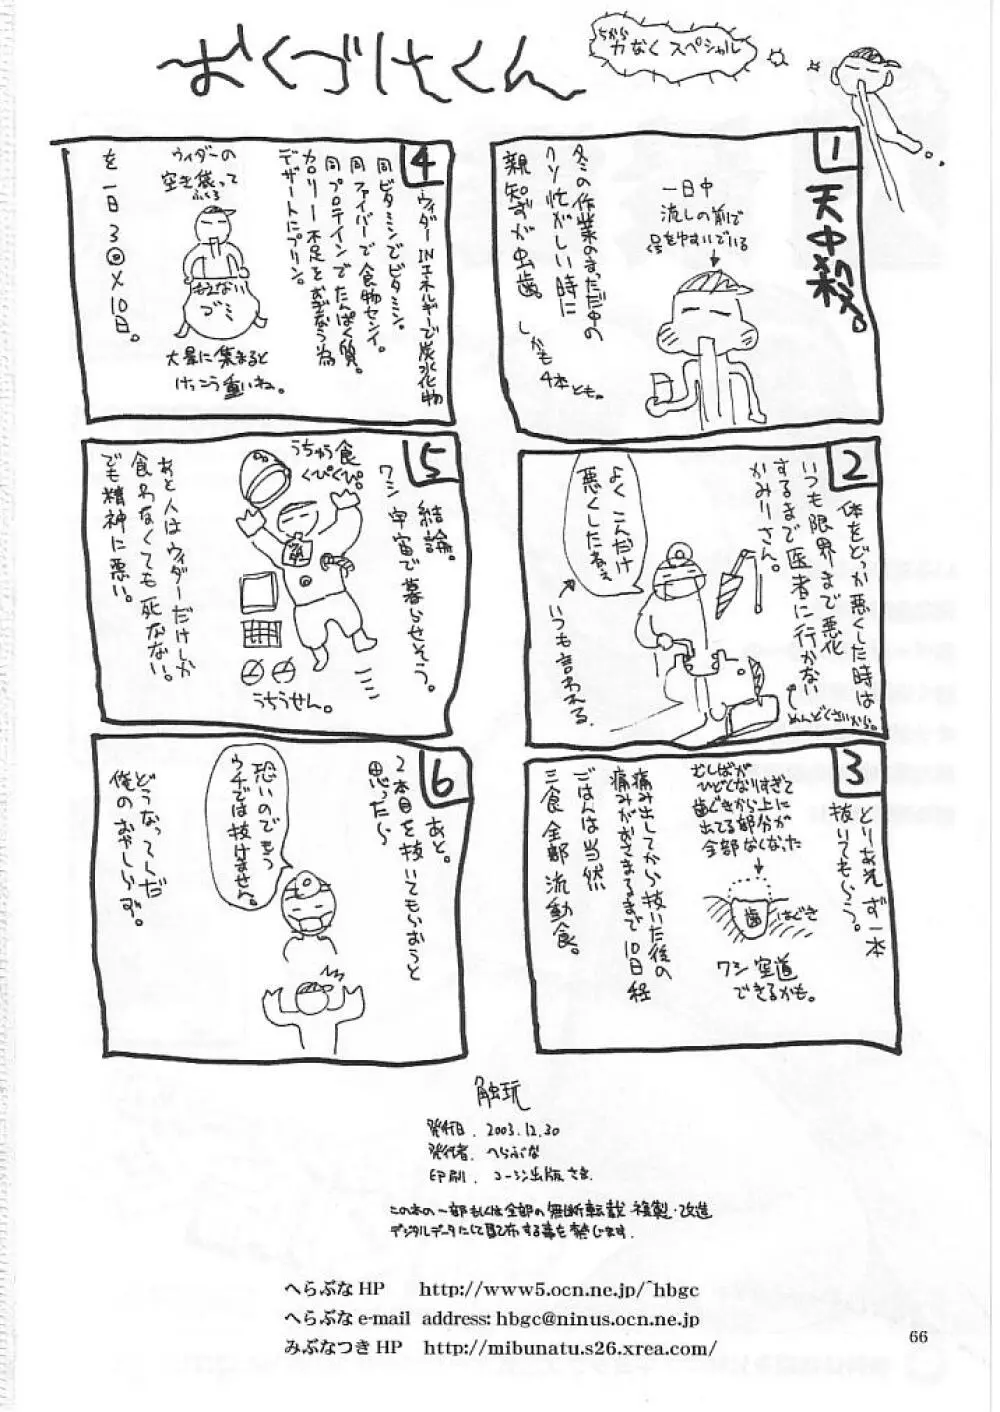 おくづけさくん
ちから
力なくスペシャル
1
天中殺。
冬の作業のまっただ中の
クソ忙がしい時に
親知ずが虫歯。
しかも
4本とも。
一日中
流しの前で
口をゆすいでいる
2
体をどっか悪くした時は
いつも限界まで悪化
するまで医者に行かない
かみりさん。
めんどくさいから。
よくこんだけ
悪くしたねぇ
いつも言われる。
3
とりあえず一本
抜いてもらう。
むしばが
ひどくなりすぎて
歯ぐきから上に
出てる部分が
全部なくなった
歯
はぐき
ワシ空道
できるかも。
痛み出してから抜いた後の
痛みがおさまるまで10日程
ごはんは当然
三食全部流動食。
4
ウィダーINエネルギーで炭水化物
同ビタミンでビタミン。
同ファイバーで食物センイ。
同プロテインでたんぱく質。
カロリー不足をおぎなう為
デザートにプリン。
を一日3回×10日。
ウィダーの
空き袋って
ふくろ
もえない
ゴミ
大量に集まると
けっこう重いね。
5
結論。
ワシ宇宙で暮らせそう。
うちゅう食
くぴくぴ。
ここ
うちうせん。
あと人はウィダーだけしか
食わなくても死なない。
でも精神に悪い。
6
あと。
2本目を抜いてもらおうと
思ったら
恐いのでもう
ウチでは抜けません。
どうなってんだ
俺のおやしらず。
触玩
発行日. 2003.12.30
発行者. へらぶな
印刷. コーシン出版さま
この本の一部もしくは全部の無断転載・複製・改造
デジタルデータにして配布する事を禁じます.
へらぶな HP http://www5.ocn.ne.jp/~hbgc
へらぶな e-mail address: hbgc@ninus.ocn.ne.jp
みぶなつき HP http://mibunatu.s26.xrea.com/
66